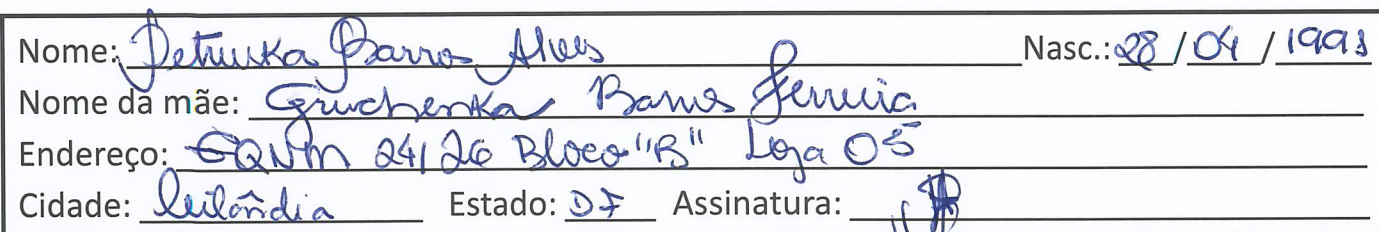 Nome: Petruska Barros Alves Nasc.: 28/04/1991
Nome da mãe: Gruchenka Barros Ferreira
Endereço: EQNM 24/26 Bloco "B" Loja 05
Cidade: Ceilândia Estado: DF Assinatura: